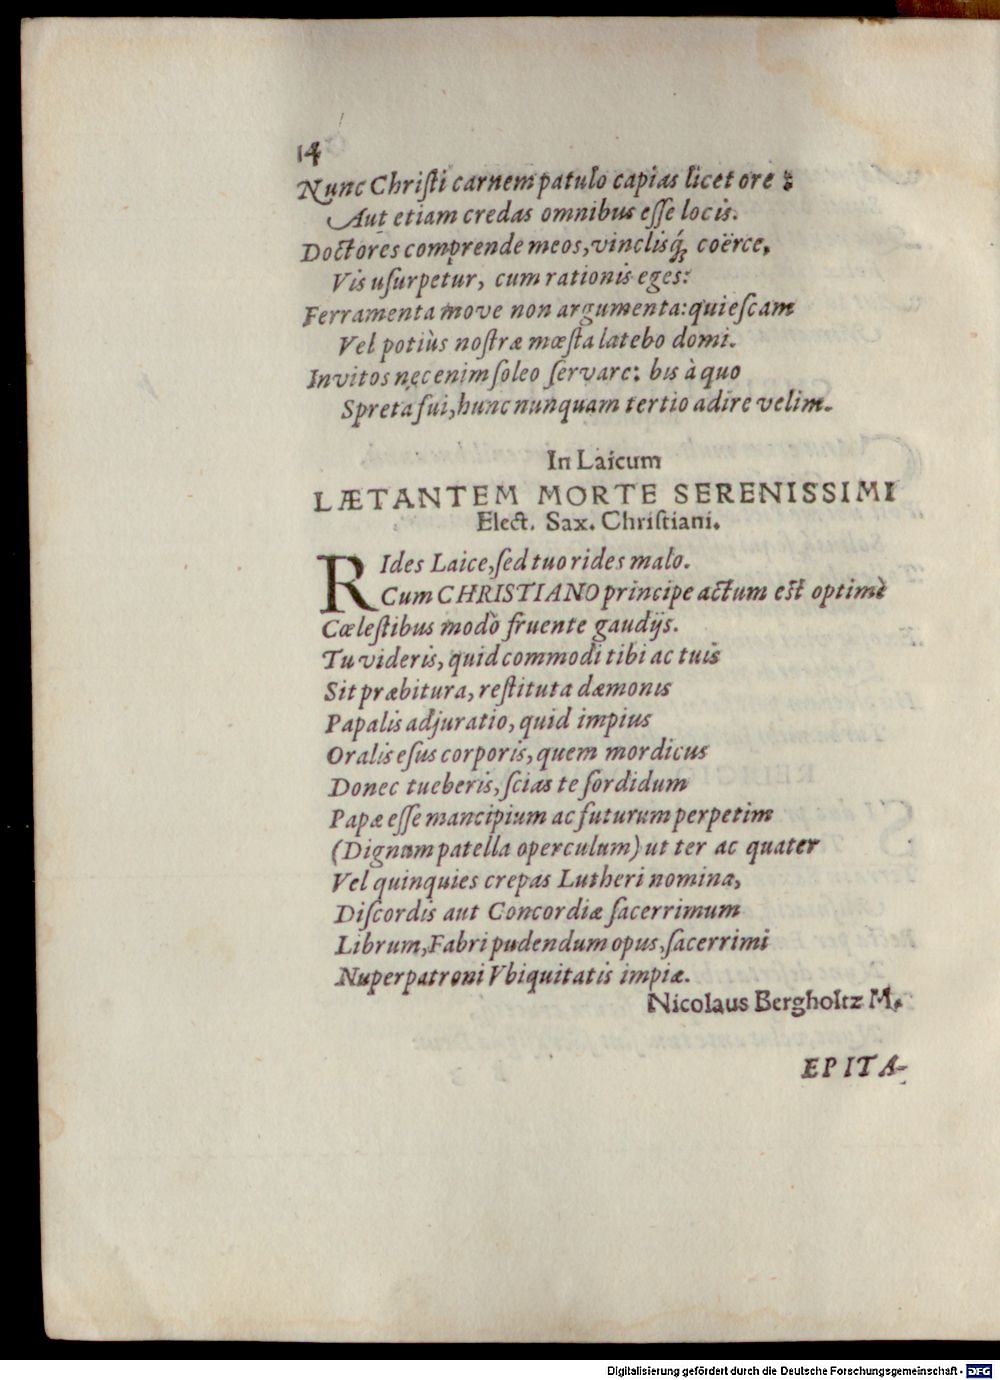 14
Nunc Chriſti carnem patulo capias licet ore:
Aut etiam credas omnibus eſſe locis.
Doctores comprende meos, vinclisq́; coërce,
Vis uſurpetur, cum rationis eges:
Ferramenta move non argumenta: quieſcam
Vel potiùs noſtræ mœſta latebo domi.
Invitos nec enim ſoleo ſervare: bis à quo
Spreta fui, hunc nunquam tertio adire velim.
In Laicum
LÆTANTEM MORTE SERENISSIMI
Elect. Sax. Chriſtiani.
RIdes Laice, ſed tuo rides malo.
Cum CHRISTIANO principe actum eſt optimè
Cœleſtibus modò fruente gaudijs.
Tu videris, quid commodi tibi ac tuis
Sit præbitura, reſtituta dæmonis
Papalis adjuratio, quid impius
Oralis eſus corporis, quem mordicus
Donec tueberis, ſcias te ſordidum
Papæ eſſe mancipium ac futurum perpetim
(Dignum patella operculum) ut ter ac quater
Vel quinquies crepas Lutheri nomina,
Diſcordis aut Concordiæ ſacerrimum
Librum, Fabri pudendum opus, ſacerrimi
Nuper patroni Vbiquitatis impiæ.
Nicolaus Bergholtz M.
EPITA-
Digitalisierung gefördert durch die Deutsche Forschungsgemeinschaft - DFG